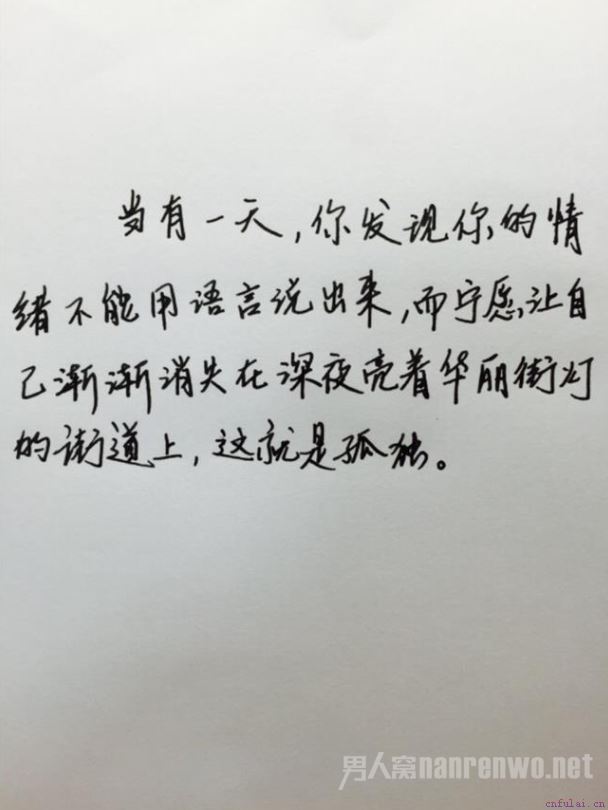 当有一天,你发现你的情
绪不能用语言说出来,而宁愿让自
己渐渐消失在深夜亮着华丽街灯
的街道上,这就是孤独。
男人窝nanrenwo.net
cnfulai.cn